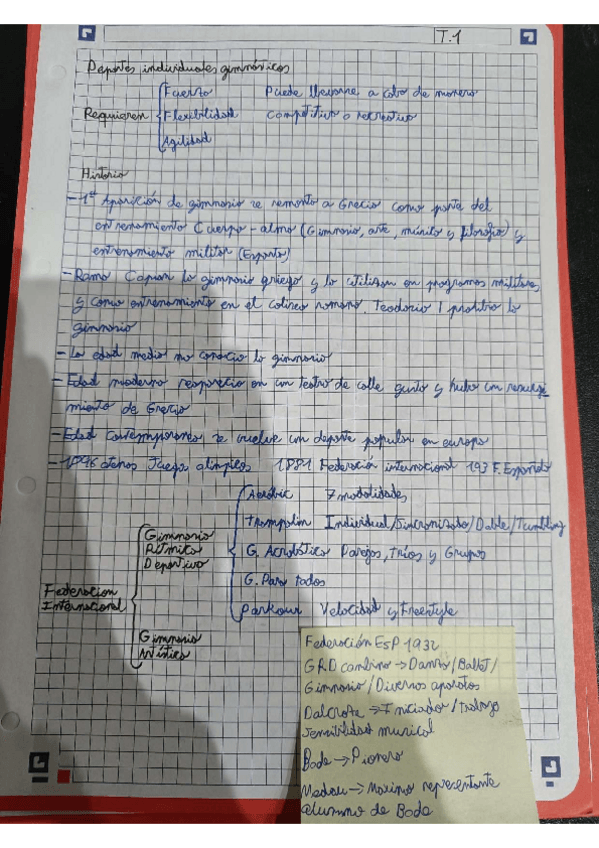 T.1
Deportes individuales gimnásticos
Requieren
Fuerza Puede llevarse a cabo de manera
Flexibilidad competitiva o recreativa
Agilidad
Historia
-1ª Aparición de gimnasia se remonta a Grecia como parte del
entrenamiento Cuerpo-alma (Gimnasia, arte, música y filosofia) y
entrenamiento militar (Esparta)
-Roma Copian la gimnasia griega y lo utilizan en programas militares,
y como entrenamiento en el coliseo romano. Teodosio I prohibe la
gimnasia
-La edad media no conocio la gimnasia
-Edad moderna reaparecio en un teatro de calle gusto y hubo un resurgi
miento de Grecia
-Edad Contemporanea se vuelve un deporte popular en europa
-1896 atenas Juegos olimpicos 1881 Federación internacional 193 F. Española
Federacion
Internacional
Gimnasia
Ritmica
Deportiva
Gimnasia
Artística
Aeróbic 7 modalidades
Trampolin Individual/Sincronizado/Doble/Tumbling
G. Acrobática Parejas, trios y Grupos
G. Para todos
Parkour Velocidad y Freestyle
Federación ESP 1932
GRD cambina → Danza/Ballet/
Gimnasia/Diversos aparatos
Dalcroze → Iniciador/Trabajo
Sensibilidad musical
Bode → Pionero
Medau → Maximo representante
alumno de Bode